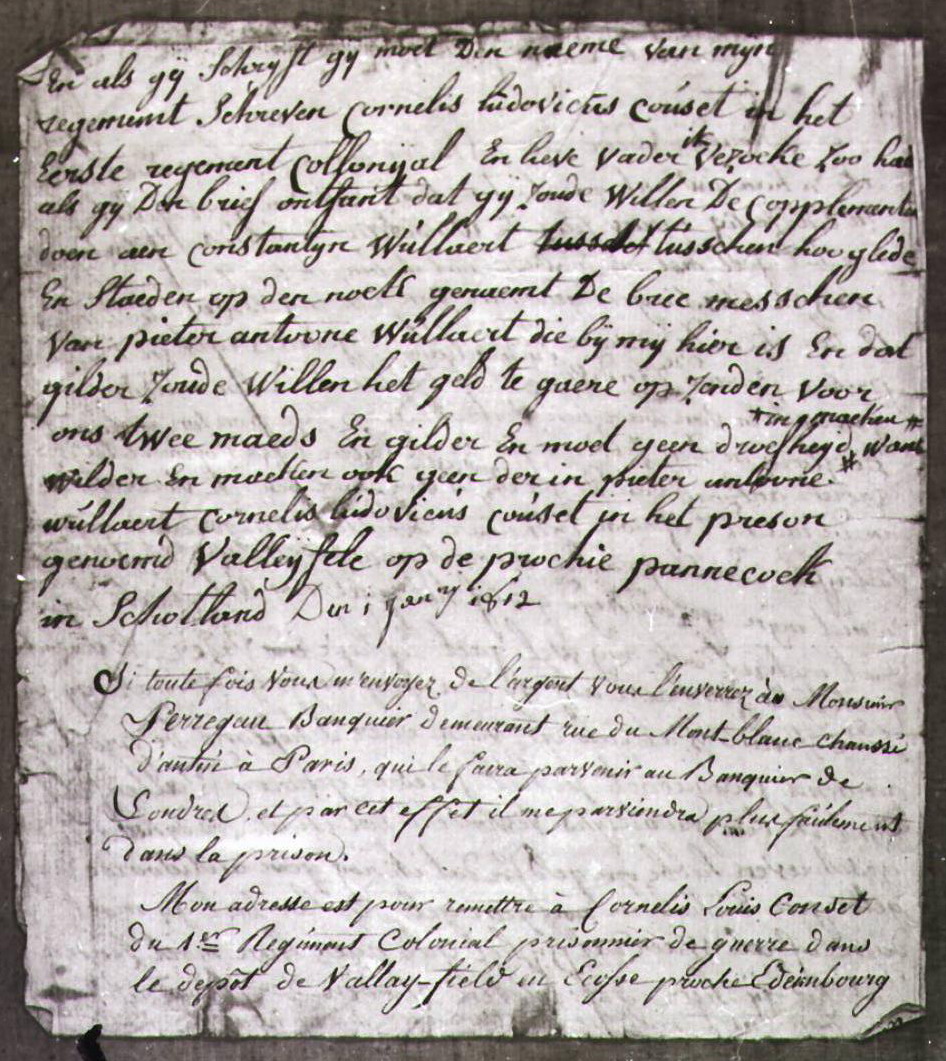 En als gÿ Schryft gy moet Den naeme van mÿn
regement Schreven Cornelis ludovicus Couset in het
Eerste regement Collonyal En lieve vader ik vezoeke Zoo haest
als gÿ Den brief ontfant dat gÿ Zoude Willen De Copplementen
doen aen Constantyn Wullaert tusschen hooglede
En Staeden op den noets genaemt De bree messchen
Van pieter antoone Wullaert die bÿ mÿ hier is En dat
gilder Zoude Willen het geld te gaere op Zenden voor
ons twee maeds En gilder En moet geen droefheyd # in gmaeken # want
wilder En maeken ook geen der in pieter antoone
wullaert Cornelis ludovicus Couset in het preson
genoemd Valleyfele op de prochie pannecoek
in Schotland Den 1 Jany 1812
Si toute fois vous m'envoyez de l'argent vous l'enverrez au Monsieur
Perregau Banquier demeurant rue du Mont-blanc chaussé
d'antin à Paris, qui le faira parvenir au Banquier de
Londres, et par cet effet il me parviendra plus facilement
dans la prison.
Mon adresse est pour remettre à Cornelis Louis Couset
du 1.er Regiment Colonial prisonnier de guerre dans
le depôt de Vallay-field en Ecosse proche Edeimbourg